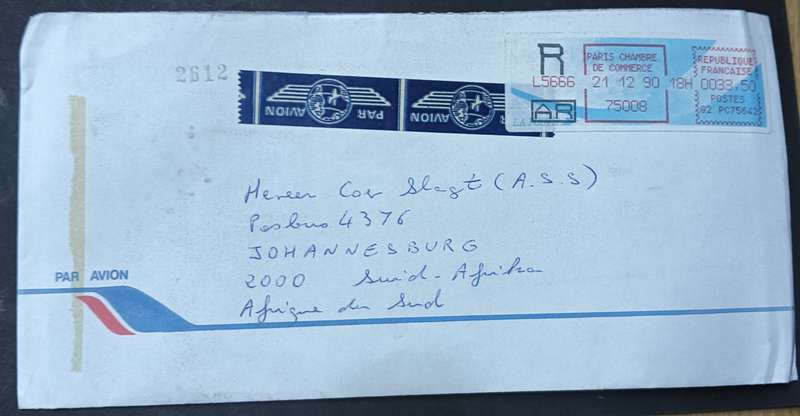 2612
PAR AVION
PAR AVION
R
L5666
AR
PARIS CHAMBRE
DE COMMERCE
21 12 90 18H
75008
REPUBLIQUE
FRANCAISE
0033,50
POSTES
PC75642
Heer Cor Slagt (A.S.S)
Posbus 4376
JOHANNESBURG
2000 Suid-Afrika
Afrique du Sud
PAR AVION